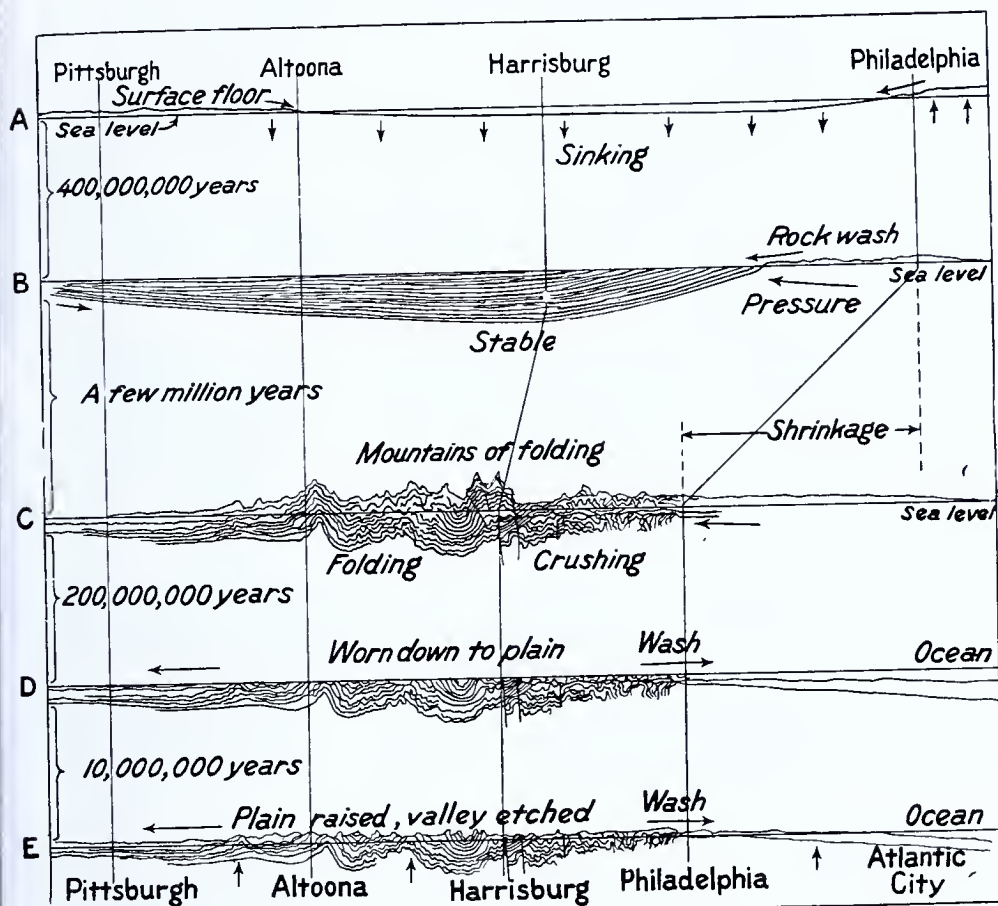 Pittsburgh Altoona Harrisburg Philadelphia
Surface floor
A
Sea level
Sinking
400,000,000 years
Rock wash
B
Sea level
Pressure
Stable
A few million years
Shrinkage
Mountains of folding
C
Sea level
Folding Crushing
200,000,000 years
Worn down to plain Wash Ocean
D
10,000,000 years
Plain raised, valley etched Wash Ocean
E
Pittsburgh Altoona Harrisburg Philadelphia Atlantic
City